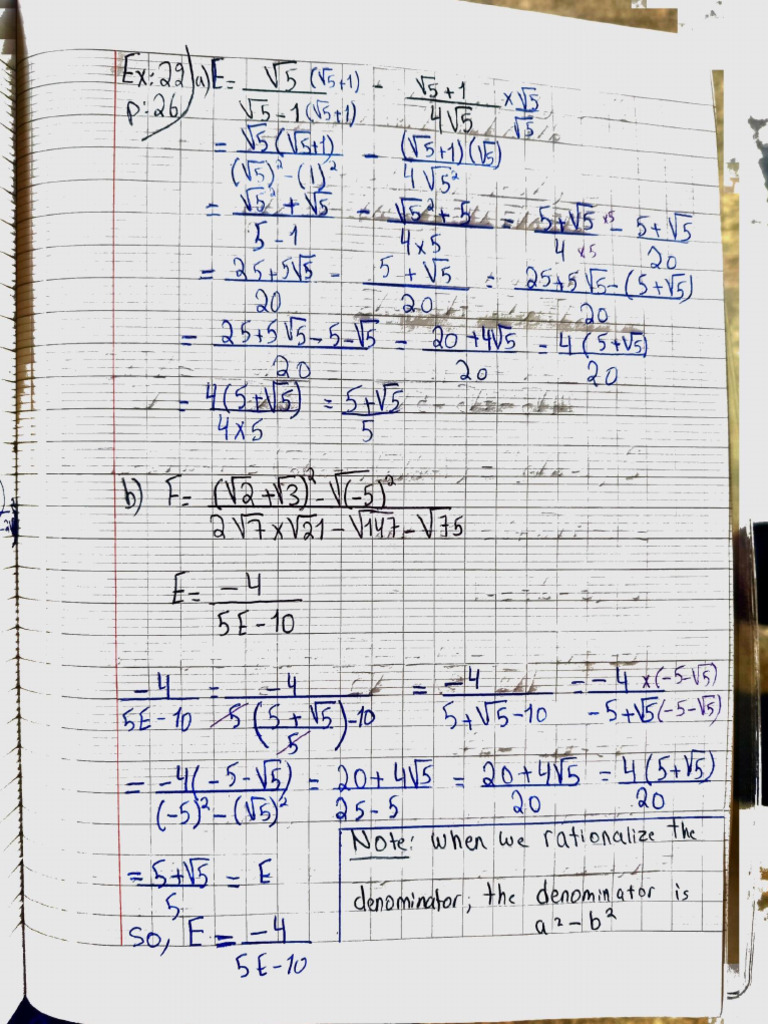 Ex: 22) a) E = √5 (√5+1) / √5 - 1 (√5+1) - √5 + 1 / 4√5 × √5 / √5
p: 26
= √5 (√5+1) / (√5)² - (1)² - (√5+1)(√5) / 4√5²
= √5² + √5 / 5 - 1 - √5² + 5 / 4 × 5 = 5 + √5 ×5 / 4 ×5 - 5 + √5 / 20
= 25 + 5√5 / 20 - 5 + √5 / 20 = 25 + 5√5 - (5 + √5) / 20
= 25 + 5√5 - 5 - √5 / 20 = 20 + 4√5 / 20 = 4 (5 + √5) / 20
= 4 (5 + √5) / 4 × 5 = 5 + √5 / 5
b) F = (√2 + √3)² - √(-5)² / 2√7 × √21 - √147 - √75
E = -4 / 5E - 10
-4 / 5E - 10 = -4 / 5 (5 + √5 / 5) - 10 = -4 / 5 + √5 - 10 = -4 × (-5 - √5) / -5 + √5 (-5 - √5)
= -4 (-5 - √5) / (-5)² - (√5)² = 20 + 4√5 / 25 - 5 = 20 + 4√5 / 20 = 4 (5 + √5) / 20
= 5 + √5 / 5 = E
so, E = -4 / 5E - 10
Note: when we rationalize the
denominator, the denominator is
a² - b²